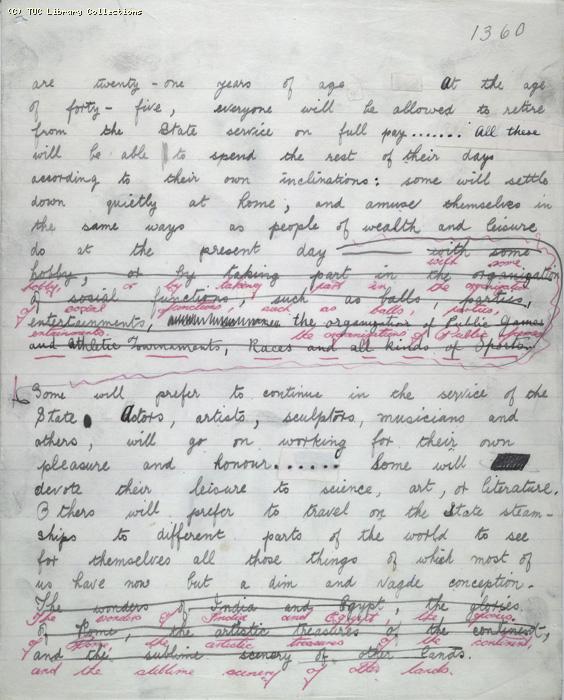 (C) TUC Library Collections
1360
are twenty-one years of age At the age
of forty-five, everyone will be allowed to retire
from the State service on full pay....... All these
will be able to spend the rest of their days
according to their own inclinations: some will settle
down quietly at home, and amuse themselves in
the same ways as people of wealth and leisure
do at the present day with some
with some
hobby, or by taking part in the organization
hobby or by taking part in the organization
of social functions, such as balls, parties,
of social functions, such as balls, parties,
entertainments, the organization of Public Games
entertainments. the organization of Public Games
and Athletic Tournaments, Races and all kinds of Sports.
Some will prefer to continue in the service of the
State. Actors, artists, sculptors, musicians and
others, will go on working for their own
pleasure and honour...... Some will
devote their leisure to science, art, or literature.
Others will prefer to travel on the State steam-
ships to different parts of the world to see
for themselves all those things of which most of
us have now but a dim and vague conception.
The wonders of India and Egypt, the glories
The wonders of India and Egypt, the glories
of Rome, the artistic treasures of the continent,
of Rome, the artistic treasures of the continent,
and the sublime scenery of other lands.
and the sublime scenery of other lands.